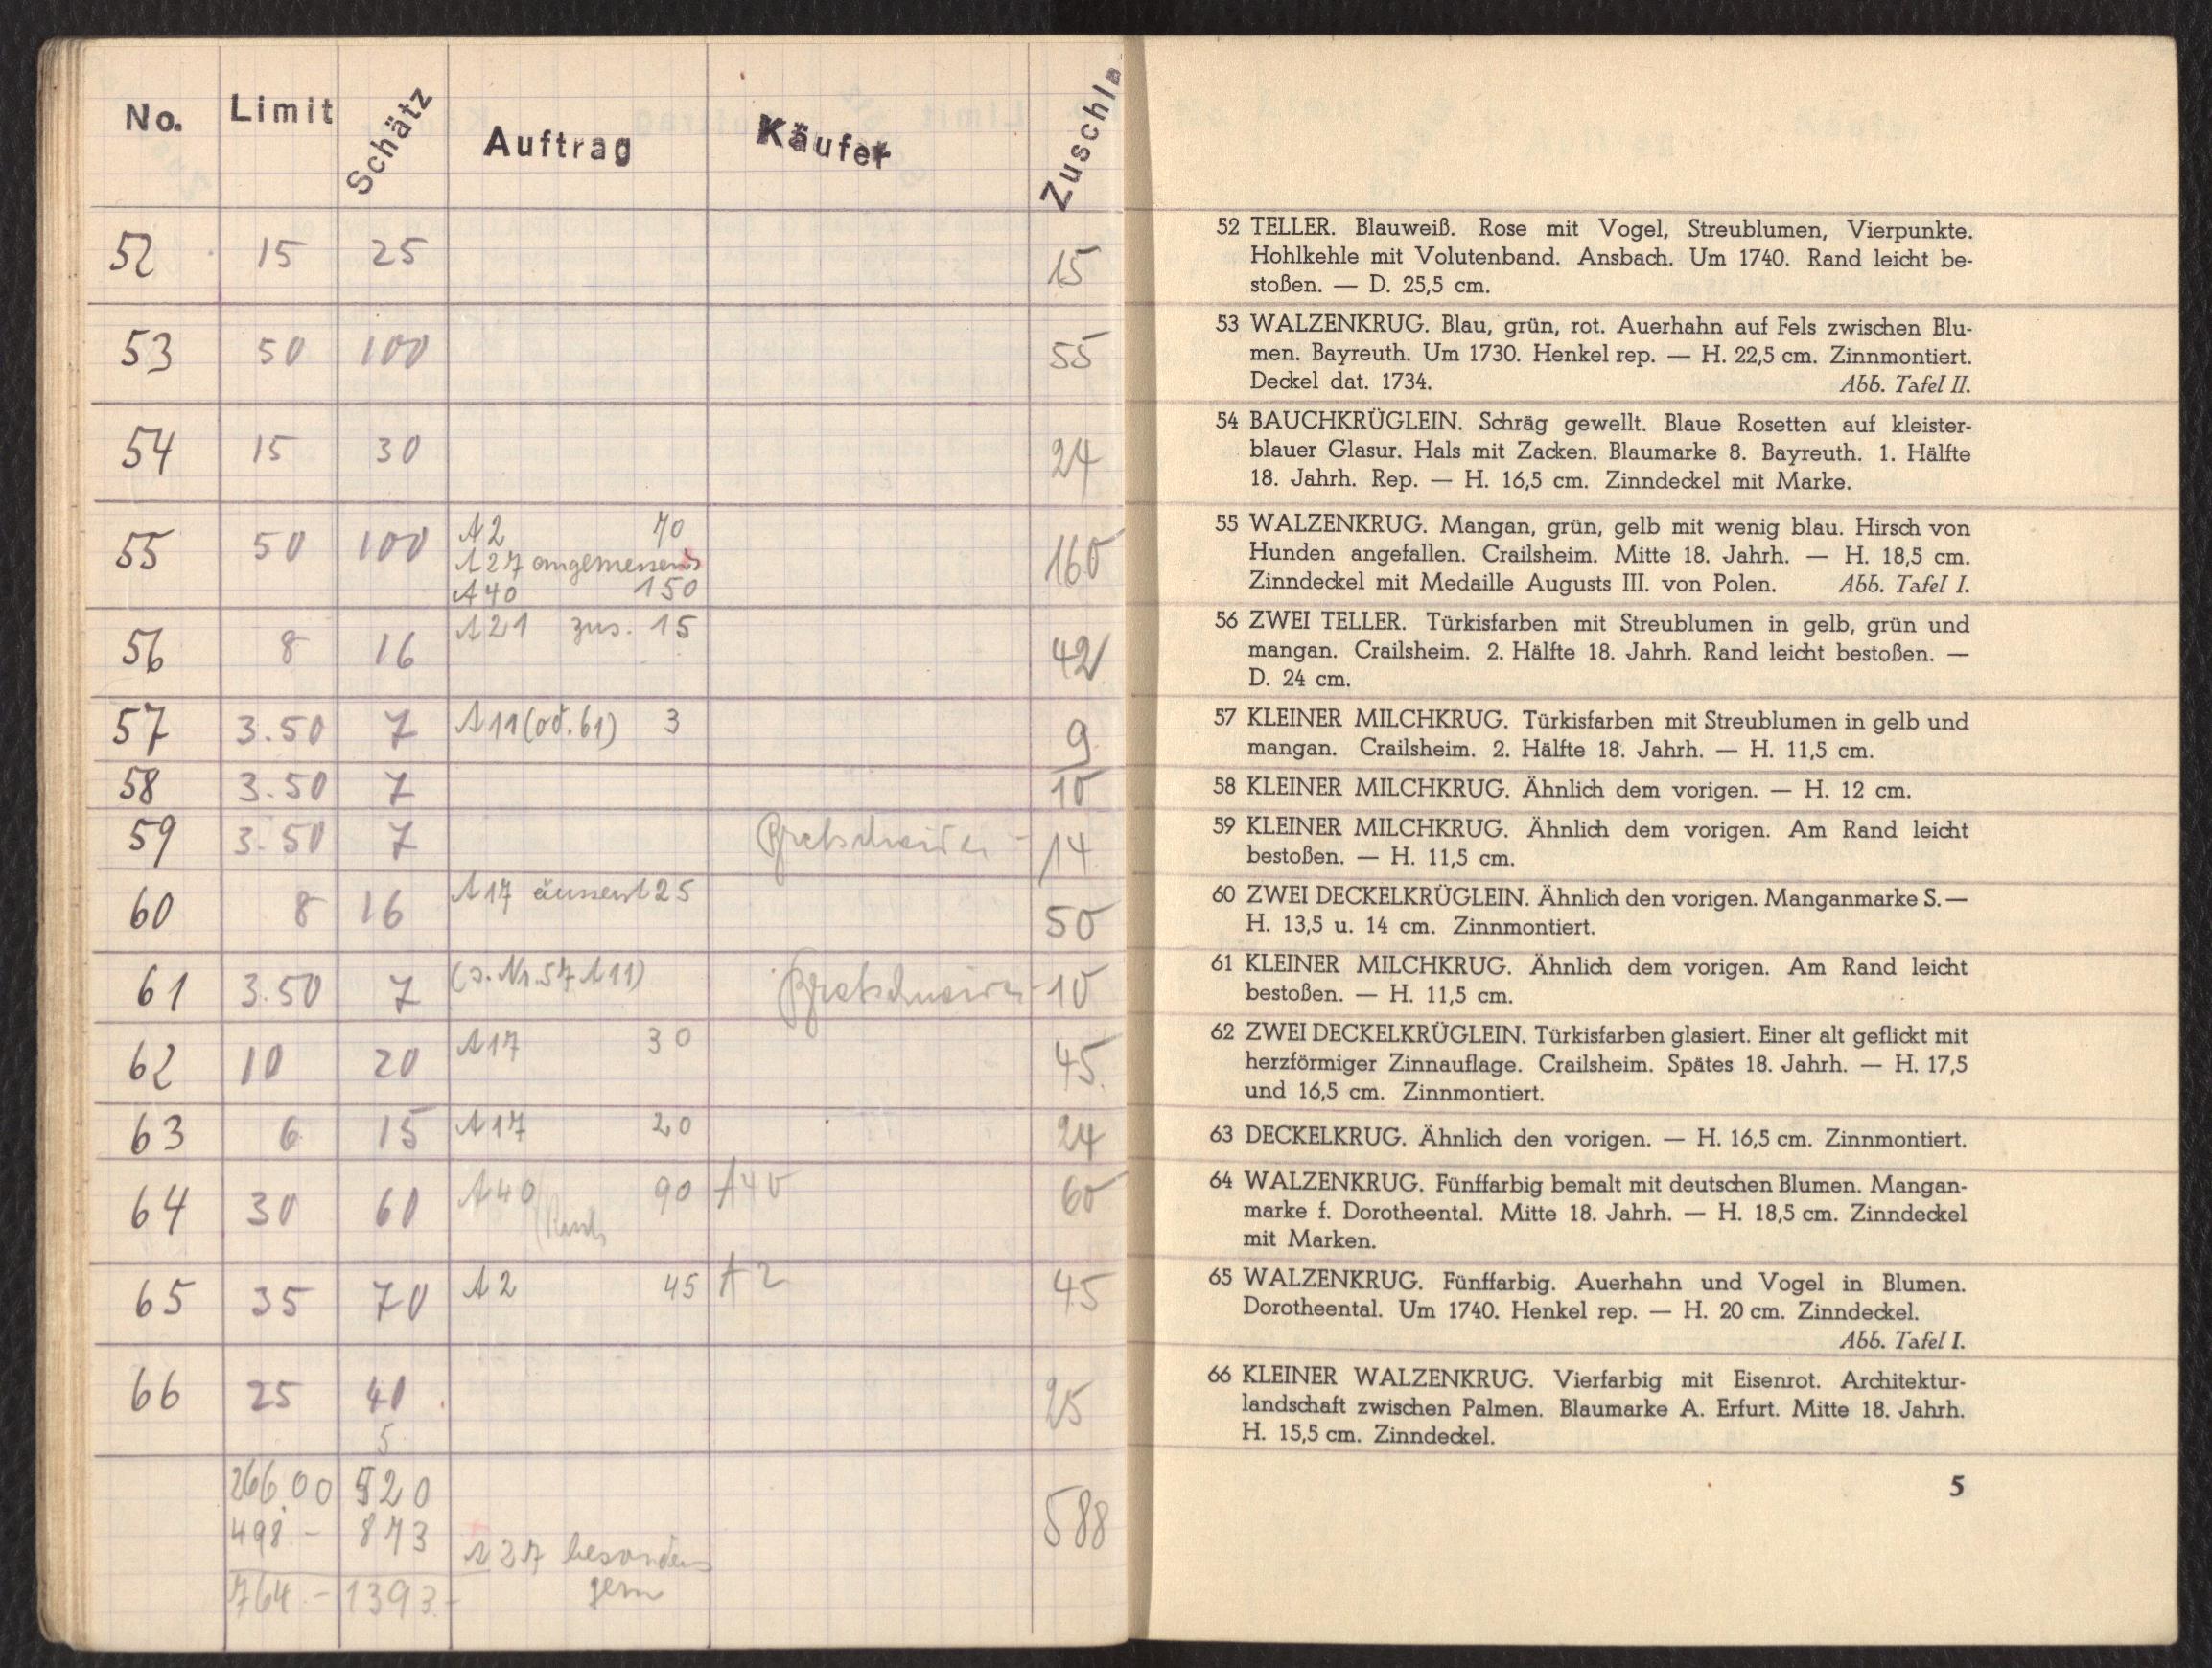 No. Limit Schätz Auftrag Käufer Zuschla
52 15 25 15
53 50 100 55
54 15 30 24
55 50 100 A2 70 160
A27 angemessend
A40 150
56 8 16 A21 zus. 15 42
57 3.50 7 A11 (od. 61) 3 9
58 3.50 7 10
59 3.50 7 14
60 8 16 A17 äusserst 25 50
61 3.50 7 (s. Nr. 57 A11) 10
62 10 20 A17 30 45
63 6 15 A17 20 24
64 30 60 A40 90 A40 60
65 35 70 A2 45 A2 45
66 25 40 25
5
266.00 520 588
498 - 873
A27 besonders
gern
764 - 1393 -
52 TELLER. Blauweiß. Rose mit Vogel, Streublumen, Vierpunkte.
Hohlkehle mit Volutenband. Ansbach. Um 1740. Rand leicht be-
stoßen. — D. 25,5 cm.
53 WALZENKRUG. Blau, grün, rot. Auerhahn auf Fels zwischen Blu-
men. Bayreuth. Um 1730. Henkel rep. — H. 22,5 cm. Zinnmontiert.
Deckel dat. 1734. Abb. Tafel II.
54 BAUCHKRÜGLEIN. Schräg gewellt. Blaue Rosetten auf kleister-
blauer Glasur. Hals mit Zacken. Blaumarke 8. Bayreuth. 1. Hälfte
18. Jahrh. Rep. — H. 16,5 cm. Zinndeckel mit Marke.
55 WALZENKRUG. Mangan, grün, gelb mit wenig blau. Hirsch von
Hunden angefallen. Crailsheim. Mitte 18. Jahrh. — H. 18,5 cm.
Zinndeckel mit Medaille Augusts III. von Polen. Abb. Tafel I.
56 ZWEI TELLER. Türkisfarben mit Streublumen in gelb, grün und
mangan. Crailsheim. 2. Hälfte 18. Jahrh. Rand leicht bestoßen. —
D. 24 cm.
57 KLEINER MILCHKRUG. Türkisfarben mit Streublumen in gelb und
mangan. Crailsheim. 2. Hälfte 18. Jahrh. — H. 11,5 cm.
58 KLEINER MILCHKRUG. Ähnlich dem vorigen. — H. 12 cm.
59 KLEINER MILCHKRUG. Ähnlich dem vorigen. Am Rand leicht
bestoßen. — H. 11,5 cm.
60 ZWEI DECKELKRÜGLEIN. Ähnlich den vorigen. Manganmarke S. —
H. 13,5 u. 14 cm. Zinnmontiert.
61 KLEINER MILCHKRUG. Ähnlich dem vorigen. Am Rand leicht
bestoßen. — H. 11,5 cm.
62 ZWEI DECKELKRÜGLEIN. Türkisfarben glasiert. Einer alt geflickt mit
herzförmiger Zinnauflage. Crailsheim. Spätes 18. Jahrh. — H. 17,5
und 16,5 cm. Zinnmontiert.
63 DECKELKRUG. Ähnlich den vorigen. — H. 16,5 cm. Zinnmontiert.
64 WALZENKRUG. Fünffarbig bemalt mit deutschen Blumen. Mangan-
marke f. Dorotheental. Mitte 18. Jahrh. — H. 18,5 cm. Zinndeckel
mit Marken.
65 WALZENKRUG. Fünffarbig. Auerhahn und Vogel in Blumen.
Dorotheental. Um 1740. Henkel rep. — H. 20 cm. Zinndeckel.
Abb. Tafel I.
66 KLEINER WALZENKRUG. Vierfarbig mit Eisenrot. Architektur-
landschaft zwischen Palmen. Blaumarke A. Erfurt. Mitte 18. Jahrh.
H. 15,5 cm. Zinndeckel.
5